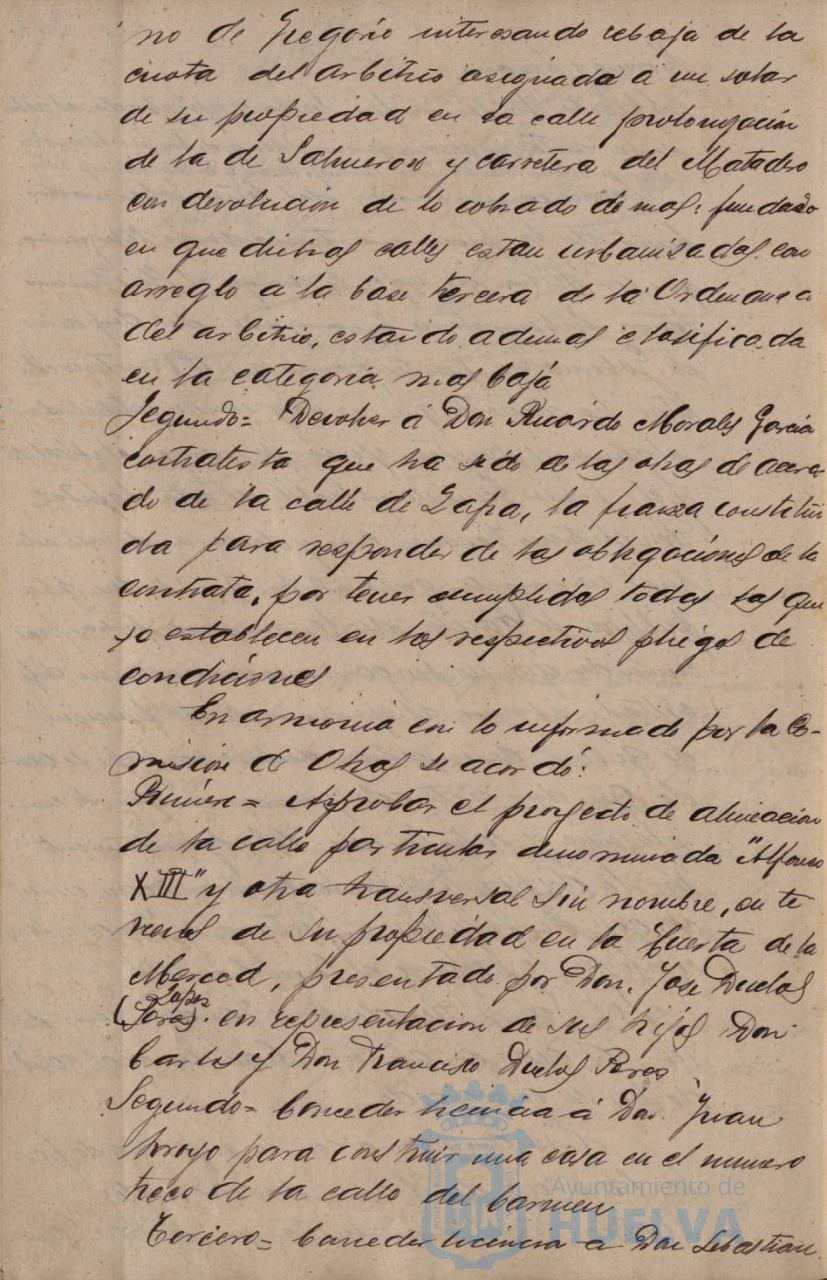 no de Gregorio interesando rebaja de la
cuota del arbitrio asignada a un solar
de su propiedad en la calle prolongación
de la de Salmeron y carretera del Matadero
con devolucion de lo cobrado de mas: fundado
en que dichas calles estan urbanizadas con
arreglo á la base tercera de la Ordenanza
del arbitrio, estando ademas clasificada
en la categoria mas baja
Segundo= Devolver á Don Ricardo Morales Garcia
contratista que ha sido de las obras de acera-
do de la calle de Zafra, la fianza constitui
da para responder de las obligaciones de la
contrata, por tener cumplidas todas las que
se establecen en los respectivos pliegos de
condiciones
En armonia con lo informado por la Co-
mision de Obras se acordó:
Primero= Aprobar el proyecto de alineacion
de la calle particular denominada "Alfonso
XIII" y otra transversal sin nombre, en te
rrenos de su propiedad en la Huerta de la
Merced, presentado por Don. Jose Duclos
Lopez
(Peres). en representacion de sus hijos Don
Carlos y Don Francisco Duclos Peres
Segundo= Conceder licencia á Don Juan
Arroyo para construir una casa en el numero
trece de la calle del Carmen
Tercero= Conceder licencia a Don Sebastian
Ayuntamiento de
HUELVA